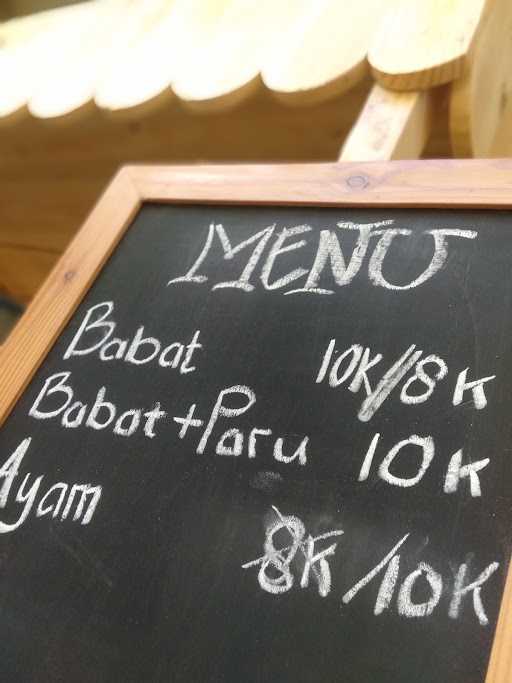 MENU
Babat 10K/8K
Babat+Paru 10K
Ayam 8K/10K